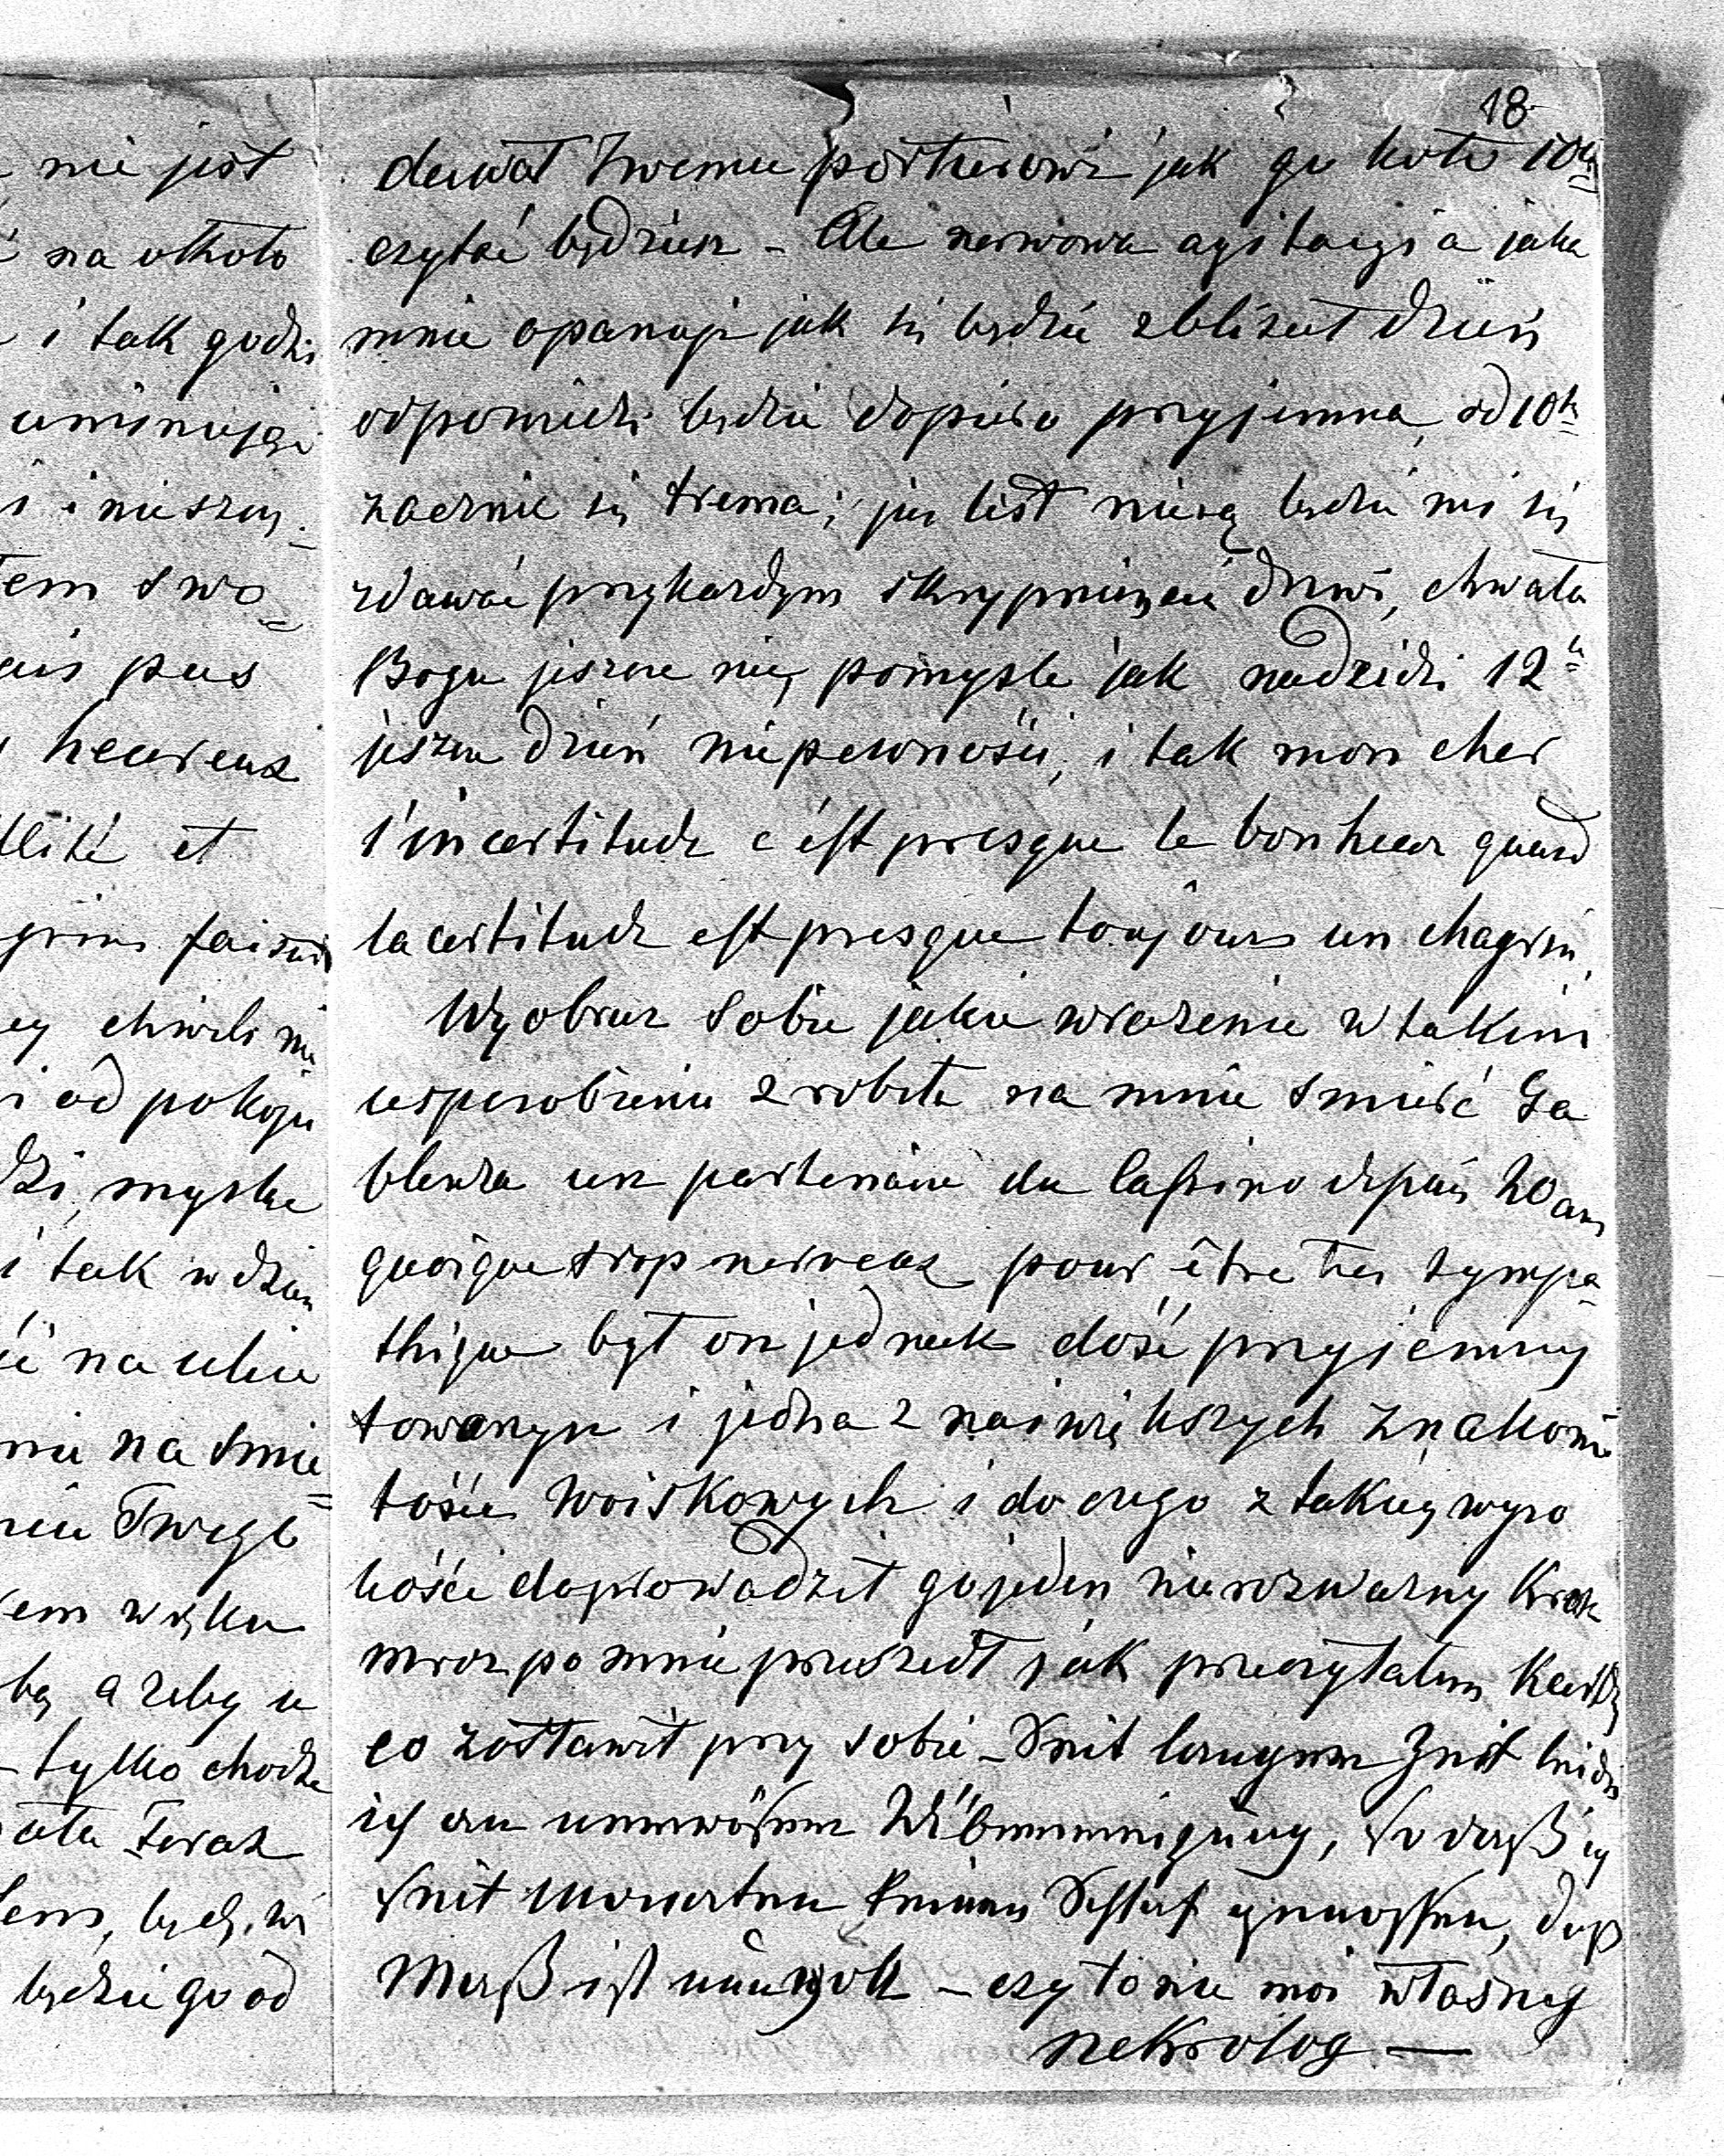 nie jest
na około
i tak godzi
uminują
i nieszczę-
tem swo=
pas
heureux
et
faisait
chwili nie
od pokoju
myślę
i tak w dzień
na ulicę
na śmie=
Twego
w ręku
a żeby u
tylko chodzę
Teraz
będzie go od
18
dawał Twemu portierowi jak go koło 10go
czytać będziesz – Ale nerwowa agitacyia jaka
mnie opanuje jak się będzie zbliżał dzień
odpowiedzi będzie dopiero przyjemna, od 10go
zacznie się trema; już list niosą będzie mi się
zdawać przy każdym skrzypnięciu drzwi, chwała
Bogu jeszcze nie, pomyślę jak nadejdzi 12go
jeszcze dzień niepewności, i tak mon cher
l'incertitude c'est presque le bonheur quand
la certitude est presque toujours un chagrin,
Wyobraź sobie jakie wrażenie w takim
usposobieniu zrobiła na mnie śmierć Ga
blenza un partenaire du Cassino depuis 20 ans
quoique trop nerveux pour être très sympa-
thique był on jednak dość przyjemny
towarzysz i jedna z naiwiększych znakomi
tości woiskowych i do czego z takiey wyso
kości doprowadził go jeden nierozważny krok
mróz po mnie przeszedł jak przeczytałem kartkę
co zostawił przy sobie – Seit langem Zeit leide
ich an nervöser, so daß ich
seit Monaten keinen Schlaf genossen, das
Maß ist nun voll – czy to nie mój własny
nekrolog —